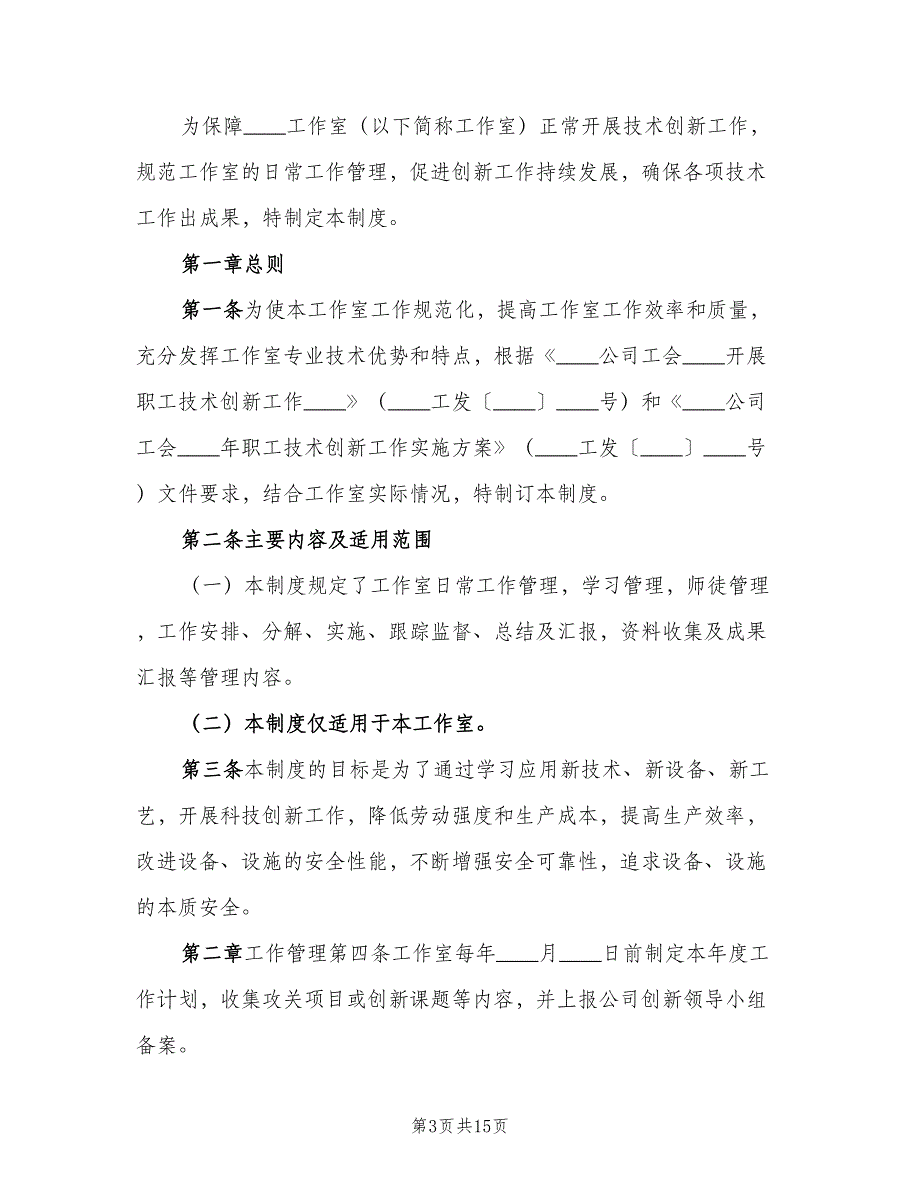 为保障____工作室（以下简称工作室）正常开展技术创新工作，
规范工作室的日常工作管理，促进创新工作持续发展，确保各项技术
工作出成果，特制定本制度。
第一章总则
第一条为使本工作室工作规范化，提高工作室工作效率和质量，
充分发挥工作室专业技术优势和特点，根据《____公司工会____开展
职工技术创新工作____》（____工发〔____〕____号）和《____公司
工会____年职工技术创新工作实施方案》（____工发〔____〕____号
）文件要求，结合工作室实际情况，特制订本制度。
第二条主要内容及适用范围
（一）本制度规定了工作室日常工作管理，学习管理，师徒管理
，工作安排、分解、实施、跟踪监督、总结及汇报，资料收集及成果
汇报等管理内容。
（二）本制度仅适用于本工作室。
第三条本制度的目标是为了通过学习应用新技术、新设备、新工
艺，开展科技创新工作，降低劳动强度和生产成本，提高生产效率，
改进设备、设施的安全性能，不断增强安全可靠性，追求设备、设施
的本质安全。
第二章工作管理第四条工作室每年____月____日前制定本年度工
作计划，收集攻关项目或创新课题等内容，并上报公司创新领导小组
备案。
第3页共15页